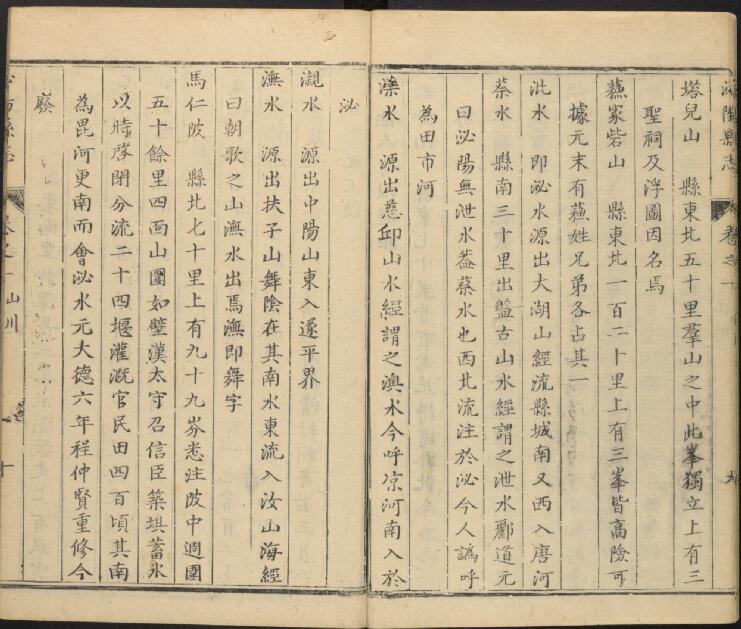 泌陽縣志 卷之一 九
塔兒山 縣東北五十里羣山之中此峯獨立上有三
聖祠及浮圖因名焉
蘓家砦山 縣東北一百二十里上有三峯皆高險可
據元末有蘓姓兄弟各占其一
泚水 即泌水源出大湖山經流縣城南又西入唐河
蔡水 縣南三十里出盤古山水經謂之泄水酈道元
曰泌陽無泄水葢蔡水也西北流注於泌今人譌呼
為田市河
濝水 源出慈邱山水經謂之澳水今呼凉河南入於
泌
瀙水 源出中陽山東入遂平界
潕水 源出扶子山舞陰在其南水東流入汝山海經
曰朝歌之山潕水出焉潕即舞字
馬仁陂 縣北七十里上有九十九岕悉注陂中週圍
五十餘里四面山圍如壁漢太守召信臣築埧蓄水
以時啓閉分流二十四堰灌溉官民田四百頃其南
為毘河更南而會泌水元大德六年程仲賢重修今
廢
縣志 卷之一 山川 十